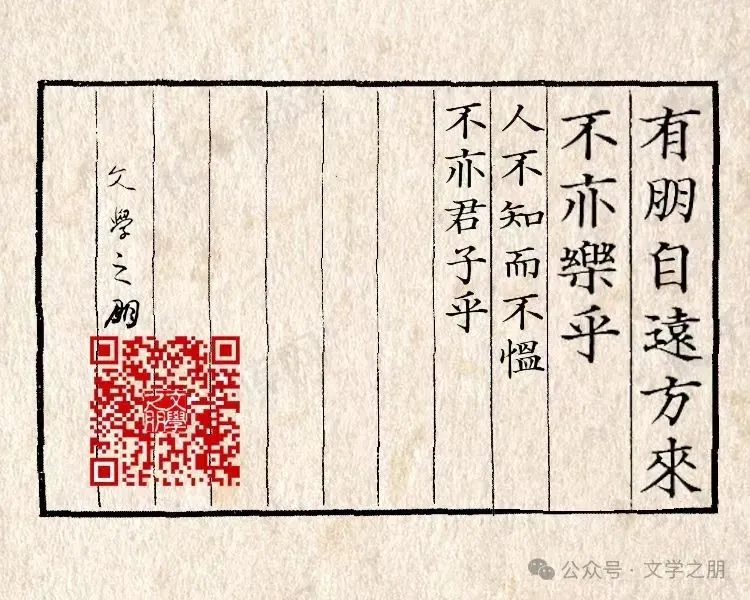 有朋自遠方來
不亦樂乎
人不知而不慍
不亦君子乎
文學之朋
文學之朋
公众号 · 文学之朋